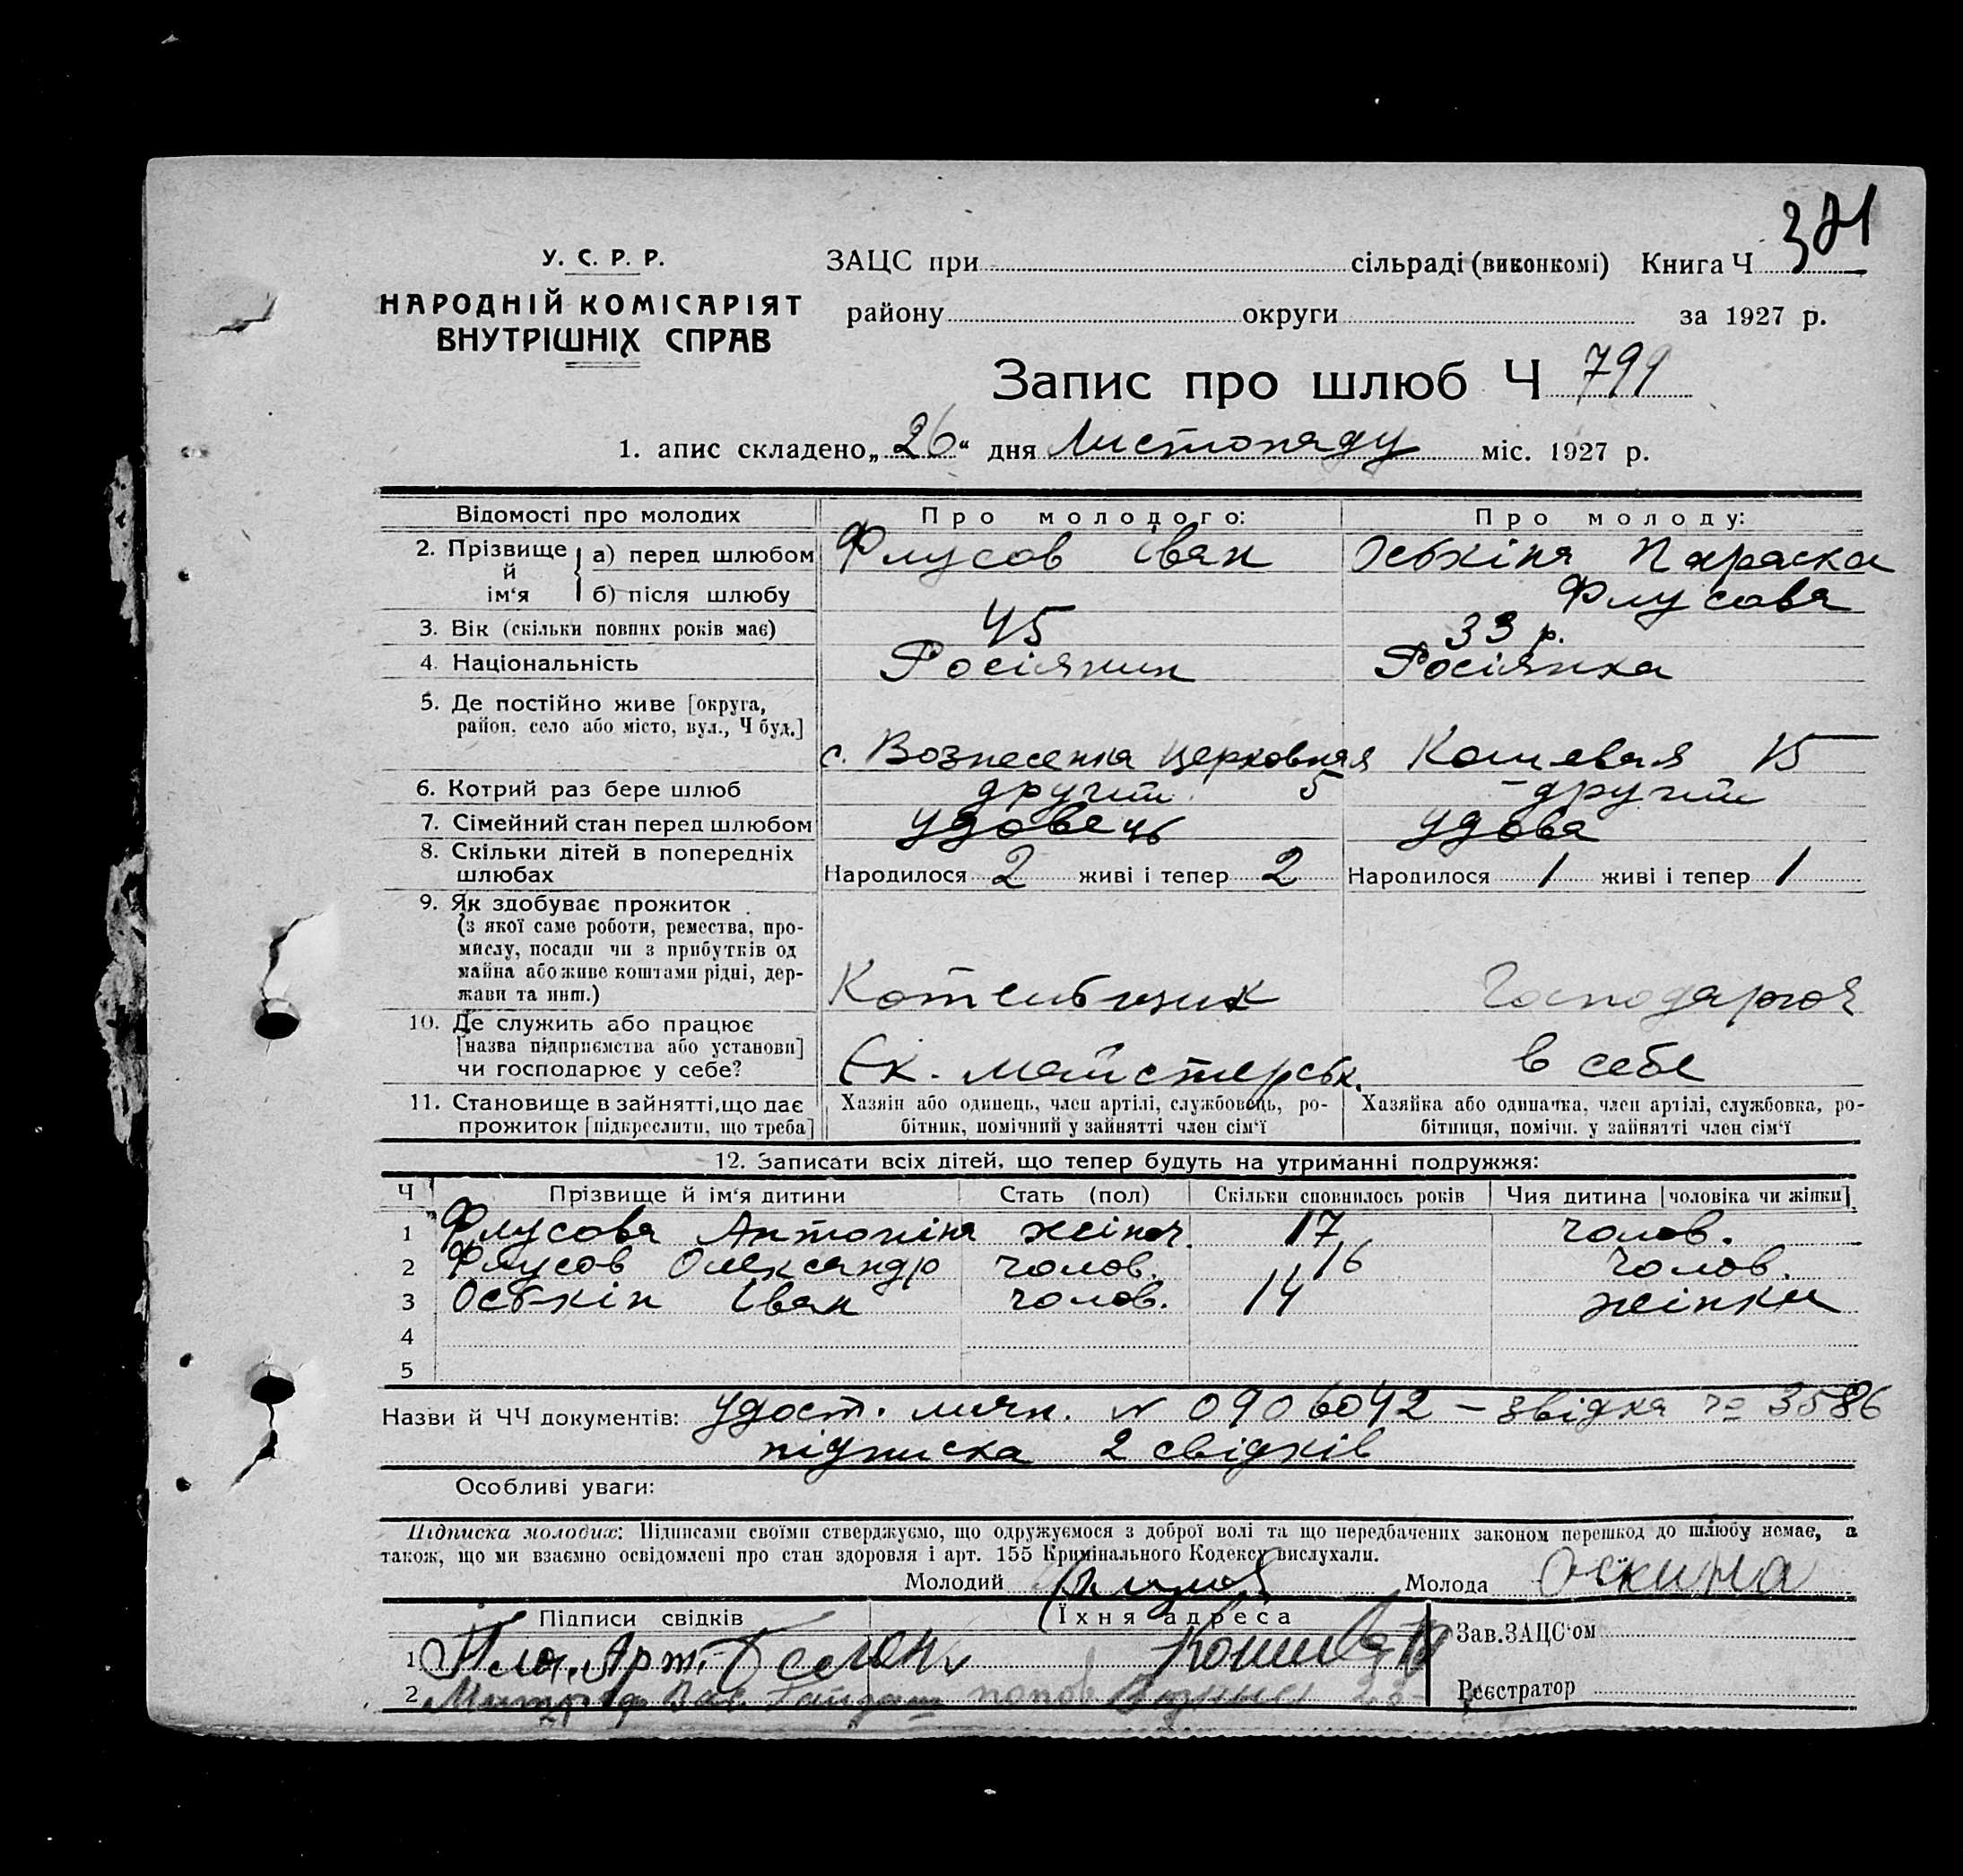 381
У. С. Р. Р.
НАРОДНІЙ КОМІСАРІЯТ
ВНУТРІШНІХ СПРАВ
ЗАЦС при сільраді (виконкомі) Книга Ч
району округи за 1927 р.
Запис про шлюб Ч 799
1. апис складено „26“ дня Листопаду міс. 1927 р.
Відомості про молодих Про молодого: Про молоду:
2. Прізвище й ім‘я а) перед шлюбом Флусов Іван Оськіна Параска
б) після шлюбу Флусова
3. Вік (скільки повних років має) 45 33 р.
4. Національність Росіянин Росіянка
5. Де постійно живе [округа,
район, село або місто, вул., Ч буд.] с. Вознесенка Церковная 5 Кошевая 15
6. Котрий раз бере шлюб другий другий
7. Сімейний стан перед шлюбом удовець удова
8. Скільки дітей в попередніх
шлюбах Народилося 2 живі і тепер 2 Народилося 1 живі і тепер 1
9. Як здобуває прожиток
(з якої саме роботи, ремества, про-
мислу, посади чи з прибутків од
майна або живе коштами рідні, дер-
жави та инш.) Котельщик Господарює
10. Де служить або працює
[назва підприємства або установи]
чи господарює у себе? Єк. майстерськ. в себе
11. Становище в зайнятті, що дає
прожиток [підкреслити, що треба]
Хазяїн або одинець, член артілі, службовець, ро-
бітник, помічний у зайнятті член сім‘ї
Хазяйка або одиначка, член артілі, службовка, ро-
бітниця, помічн. у зайнятті член сім‘ї
12. Записати всіх дітей, що тепер будуть на утриманні подружжя:
Ч Прізвище й ім‘я дитини Стать (пол) Скільки сповнилось років Чия дитина [чоловіка чи жінки]
1 Флусова Антоніна жіноч. 17 чолов.
2 Флусов Олександр чолов. 16 чолов.
3 Оськін Іван чолов. 14 жінки
4
5
Назви й ЧЧ документів: удост. личн. № 0906042 – звідка № 3586
підписка 2 свідків
Особливі уваги:
Підписка молодих: Підписами своїми стверджуємо, що одружуємося з доброї волі та що передбачених законом перешкод до шлюбу немає, а
також, що ми взаємно освідомлені про стан здоровля і арт. 155 Кримінального Кодексу вислухали.
Молодий Молода Оскина
Підписи свідків Їхня адреса Зав. ЗАЦС‘ом
1
2 Реєстратор